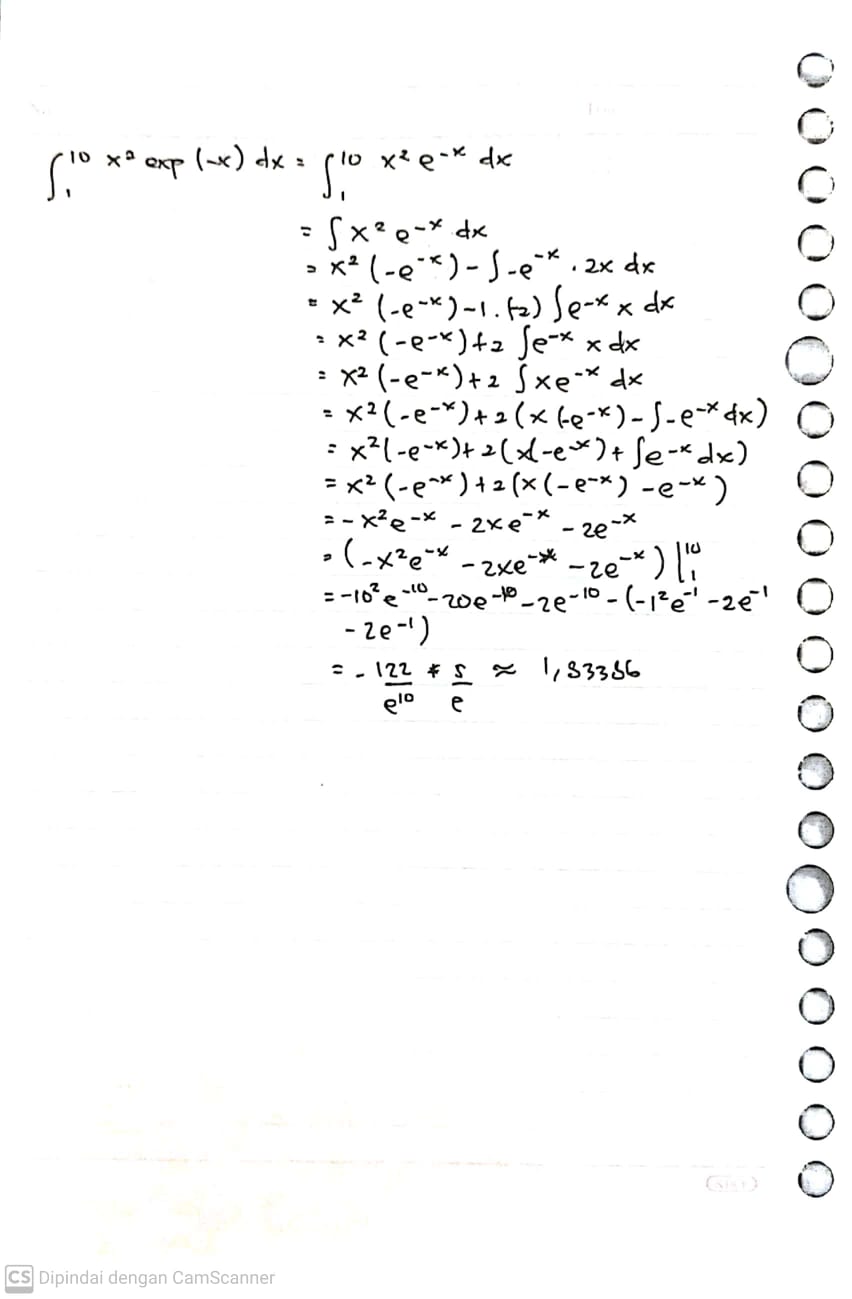 ∫₁¹⁰ x² exp (-x) dx = ∫₁¹⁰ x² e^-x dx
= ∫ x² e^-x dx
= x² (-e^-x) - ∫ -e^-x . 2x dx
= x² (-e^-x) - 1. (-2) ∫ e^-x x dx
= x² (-e^-x) + 2 ∫ e^-x x dx
= x² (-e^-x) + 2 ∫ x e^-x dx
= x² (-e^-x) + 2 (x (-e^-x) - ∫ -e^-x dx)
= x² (-e^-x) + 2 (x(-e^-x) + ∫ e^-x dx)
= x² (-e^-x) + 2 (x (-e^-x) - e^-x)
= - x² e^-x - 2x e^-x - 2e^-x
= (-x² e^-x - 2x e^-x - 2e^-x) |₁¹⁰
= -10² e^-10 - 20e^-10 - 2e^-10 - (-1² e^-1 - 2e^-1
- 2e^-1)
= - 122/e^10 + 5/e ≈ 1,83386
CS Dipindai dengan CamScanner